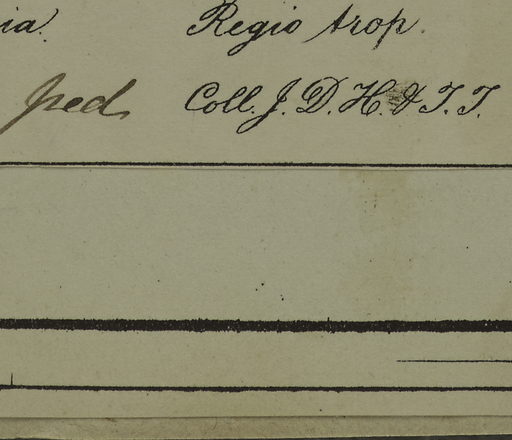 ia. Regio trop.
ped. Coll. J. D. H. & T. T.